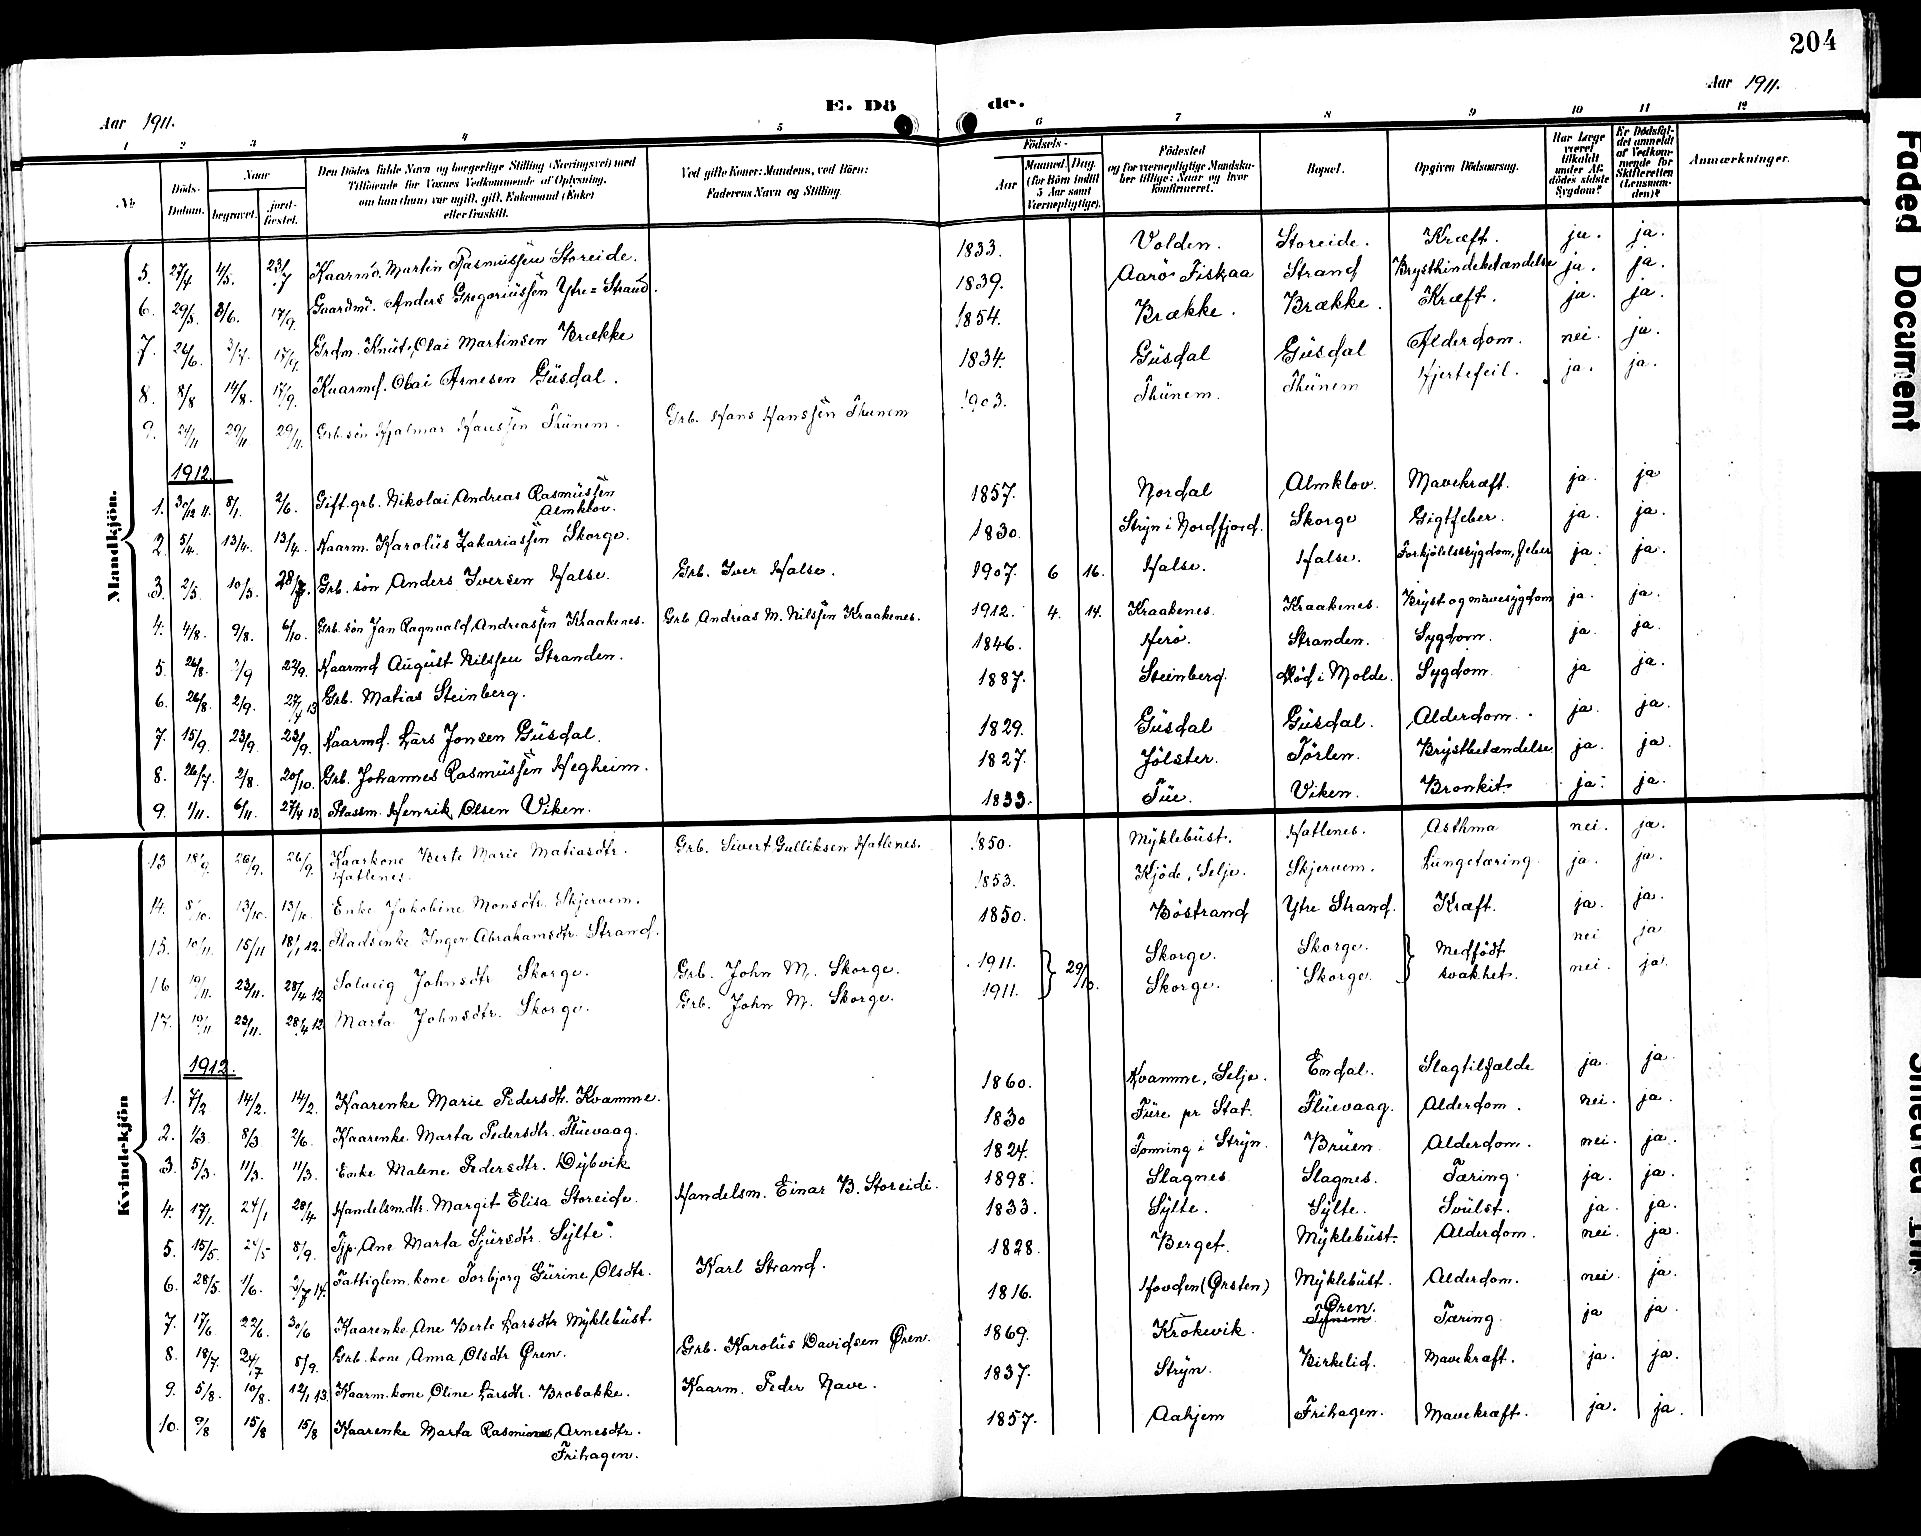 204
Aar 1911.
E. Dö de.
Aar 1911.
1 2 3 4 5 6 7 8 9 10 11 12
No.
Döds-Datum.
Naar
begravet.
jord-fæstet.
Den Dödes fulde Navn og borgerlige Stilling (Næringsvei) med
Tilföiende for Voxnes Vedkommende af Oplysning,
om han (hun) var ugift, gift, Enkemand (Enke)
eller fraskilt.
Ved gifte Koner: Mandens, ved Börn:
Faderens Navn og Stilling.
Födsels-
Aar
Maaned. Dag.
(for Börn indtil 5 Aar samt Værnepligtige).
Födested
og for værnepligtige Mandsku-
ber tillige: Naar og hvor
konfirmeret.
Bopæl.
Opgiven Dödsaarsag.
Har Læge været tilkaldt under Af-dödes sidste Sygdom?
Er Dödsfal-det anmeldt af Vedkom-mende for Skifteretten (Lensman-den)?
Anmærkninger.
Mandkjön.
5. 27/4 4/5. 23/7 Kaarmd. Martin Rasmussen Storeide. 1833. Volden. Storeide. Kræft. ja. ja.
6. 29/5 3/6. 17/9. Gaardmd. Anders Gregoriussen Ytre=Strand. 1839. Aarö Fiskaa Strand Brysthindebetændelse ja. ja.
7. 26/6. 3/7. 17/9. Grdm. Knut Olai Martinsen Brække 1854. Brække. Brække. Kræft. ja. ja.
8. 8/8 14/8. 17/9. Kaarmd. Olai Arnesen Gusdal. 1834. Gusdal Gusdal Alderdom. nei. ja.
9. 24/11 29/11 29/11. Grb. sön Hjalmar Hanssen Thunem. Grb. Hans Hanssen Thunem 1903. Thunem. Thunem Hjertefeil. ja. ja.
1912
1. 30/12 11. 8/1. 2/6. Gift. grb. Nikolai Andreas Rasmussen
Almklov. 1857. Nordal Almklov. Mavekræft. ja. ja
2. 5/4. 13/4. 13/4. Kaarm. Karolus Zakariassen Skorge. 1830. Stryn i Nordfjord. Skorge Gigtfeber. ja. ja.
3. 2/5. 10/5. 28/7. Grb. sön Anders Iversen Halse. Grb. Iver Halse. 1907. 6 16. Halse. Halse. Forkjölelsessygdom, feber ja. ja.
4. 4/8. 9/8. 6/10. Grb. sön Jan Ragnvald Andreassen Kraakenes. Grb. Andreas M. Nilssen Kraakenes. 1912. 4. 14. Kraakenes. Kraakenes. Bryst og mavesygdom ja. ja.
5. 26/8. 2/9 22/9. Kaarmd August Nilssen Stranden. 1846. Herö. Stranden. Sygdom. ja. ja.
6. 26/8. 2/9. 27/4 13 Grb. Matias Steinberg. 1887. Steinberg. död i Molde. Sygdom. ja ja.
7. 15/9. 23/9. 23/9. Kaarmd. Lars Jonsen Gusdal. 1829. Gusdal Gusdal. Alderdom. ja. ja.
8. 26/7. 2/8. 20/10. Grb. Johannes Rasmussen Hegheim. 1827. Jölster. Törlen. Brystbetændelse ja. ja.
9. 1/11. 6/11. 27/4 13 Plassm. Henrik Olsen Viken. 1833. Tue. Viken. Bronkit. ja. ja.
Kvindekjön
13 18/9. 26/9. 26/9. Kaarkone Berte Marie Matiasdtr. Grb. Sivert Gulliksen Hatlenes. 1850. Myklebust. Hatlenes. Asthma nei. ja.
Hatlenes.
14. 8/10. 13/10. 13/10. Enke Jakobine Monsdtr. Skjervem. 1853. Kjöde, Selje. Skjervem. Lungetæring. ja. ja.
15. 10/11. 15/11 18/1 12. Pladsenke Inger Abrahamsdtr. Strand. 1850. Böstrand Ytre Strand. Kræft. ja. ja.
16 19/11. 23/11. 28/4 12 Solveig Johnsdtr Skorge. Grb. John M. Skorge. 1911. 29/10. Skorge. Skorge. Medfödt nei ja
17. 19/11 23/11. 28/4 12. Marta Johnsdtr. Skorge. Grb. John M. Skorge. 1911. Skorge. Skorge. svakhet. nei. ja.
1912.
1. 7/2 14/2. 14/2. Kaarenke Marie Pedersdtr. Kvamme. 1860. Kvamme, Selje. Eidal. Slagtilfælde ja. ja.
2. 1/3. 8/3 2/6. Kaarenke. Marta Pedersdtr. Fluevaag. 1830 Fure pr Stat. Fluevaag. Alderdom. nei. ja.
3. 5/3. 11/3. 11/3. Enke Malene Pedersdtr. Dybvik 1824. Tonning i Stryn. Bruen. Alderdom. nei. ja.
4. 17/1. 24/1 28/4 Handelsm.dtr. Margit Elisa Storeide. Handelsm. Einar B. Storeide. 1898. Slagnes Slagnes. Tæring. ja. ja.
5. 15/5. 24/5 8/9. Tjp. Ane Marta Sjursdtr. Sylte. 1833. Sylte. Sylte. Svulst. ja. ja.
6. 28/5. 1/6. 3/7 14. Fattiglem. kone Torbjorg Gurine Olsdtr. Karl Strand. 1828. Berget. Myklebust. Alderdom. nei. ja.
7. 17/6 22/6. 30/6 Kaarenke Ane Berte Larsdtr Myklebust. 1816. Hovden (Ørsten) Myklebust. Alderdom. nei. ja.
8. 18/7. 24/7 8/9. Grb. kone Anna Olsdtr Øren. Grb. Karolus Davidsen Øren. 1869. Krokevik. Øren. Tæring. ja ja.
9. 5/8. 10/8. 12/1 13. Kaarm. kone Oline Larsdtr. Brobakke. Kaarm. Peder Nave. 1837. Stryn. Birkelid. Mavekræft. ja. ja.
10. 9/8 15/8 15/8 Kaarenke Marta Rasmine Arnesdtr. 1857. Aahjem Frihagen. Mavekræft. ja. ja.
Frihagen.
Faded Document